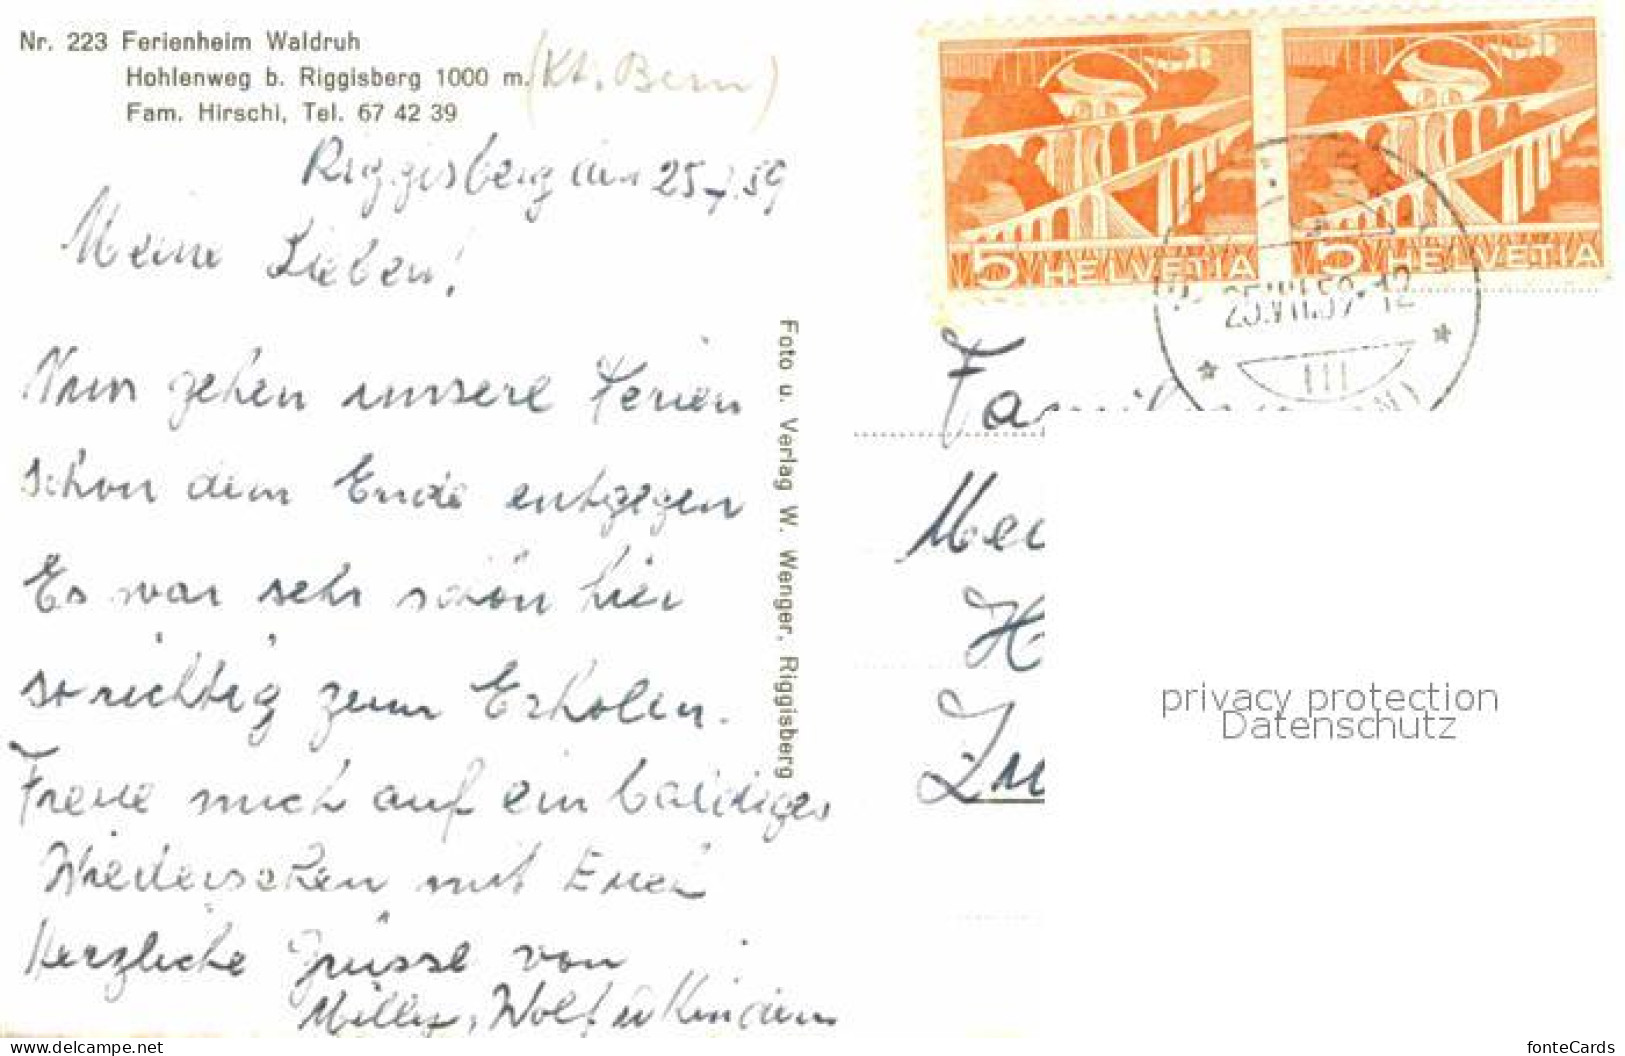 Nr. 223 Ferienheim Waldruh
Hohlenweg b. Riggisberg 1000 m. (Kt. Bern)
Fam. Hirschi, Tel. 67 42 39
Riggisberg den 25.7.59
Meine Lieben!
Nun gehen unsere Ferien
schon dem Ende entgegen
Es war sehr schön hier
so richtig zum Erholen.
Freue mich auf ein baldiges
Wiedersehen mit Euch
Herzliche Grüsse von
Milly, Wolf u Kindern
Foto u. Verlag W. Wenger, Riggisberg
5 HELVETIA
5 HELVETIA
25.VII.59.-12
Familie
privacy protection
Datenschutz
www.delcampe.net
fonteCards